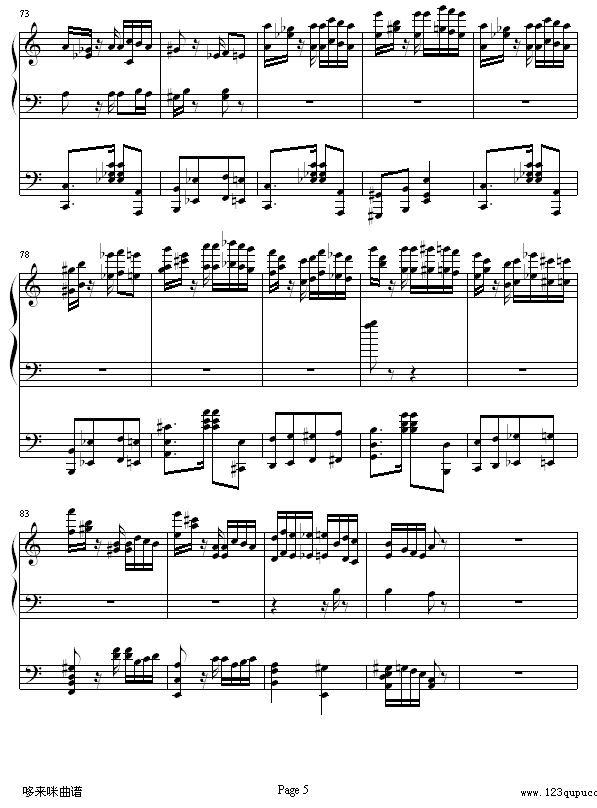 73
78
83
哆来咪曲谱
Page 5
www.123qupu.cc